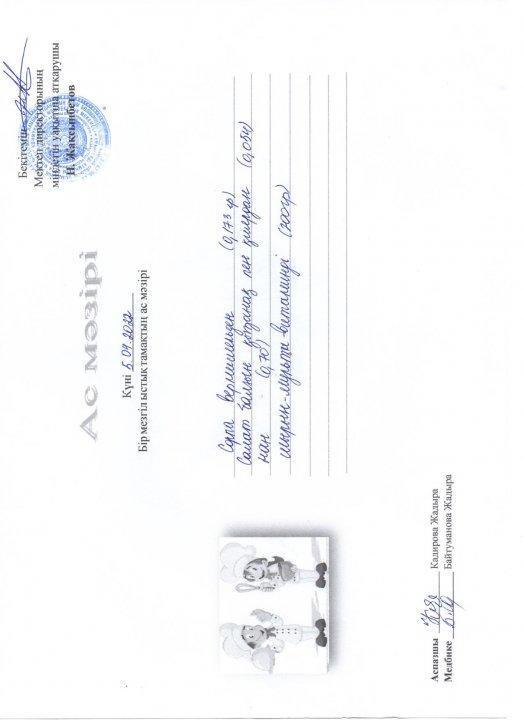 Бекітемін
Мектеп директорының
міндетін уақытша атқарушы
Н. Жаксынбетов
Ас мәзірі
Күні 5.04.2022
Бір мезгіл ыстық тамақтың ас мәзірі
Сорпа вермишельмен (0,173 гр)
Салат балғын қызанақ пен қиярдан (0,054)
нан (0,70)
шырын-мульти-витаминді (200гр)
Аспазшы Кадирова Жадыра
Медбике Байтуманова Жадыра